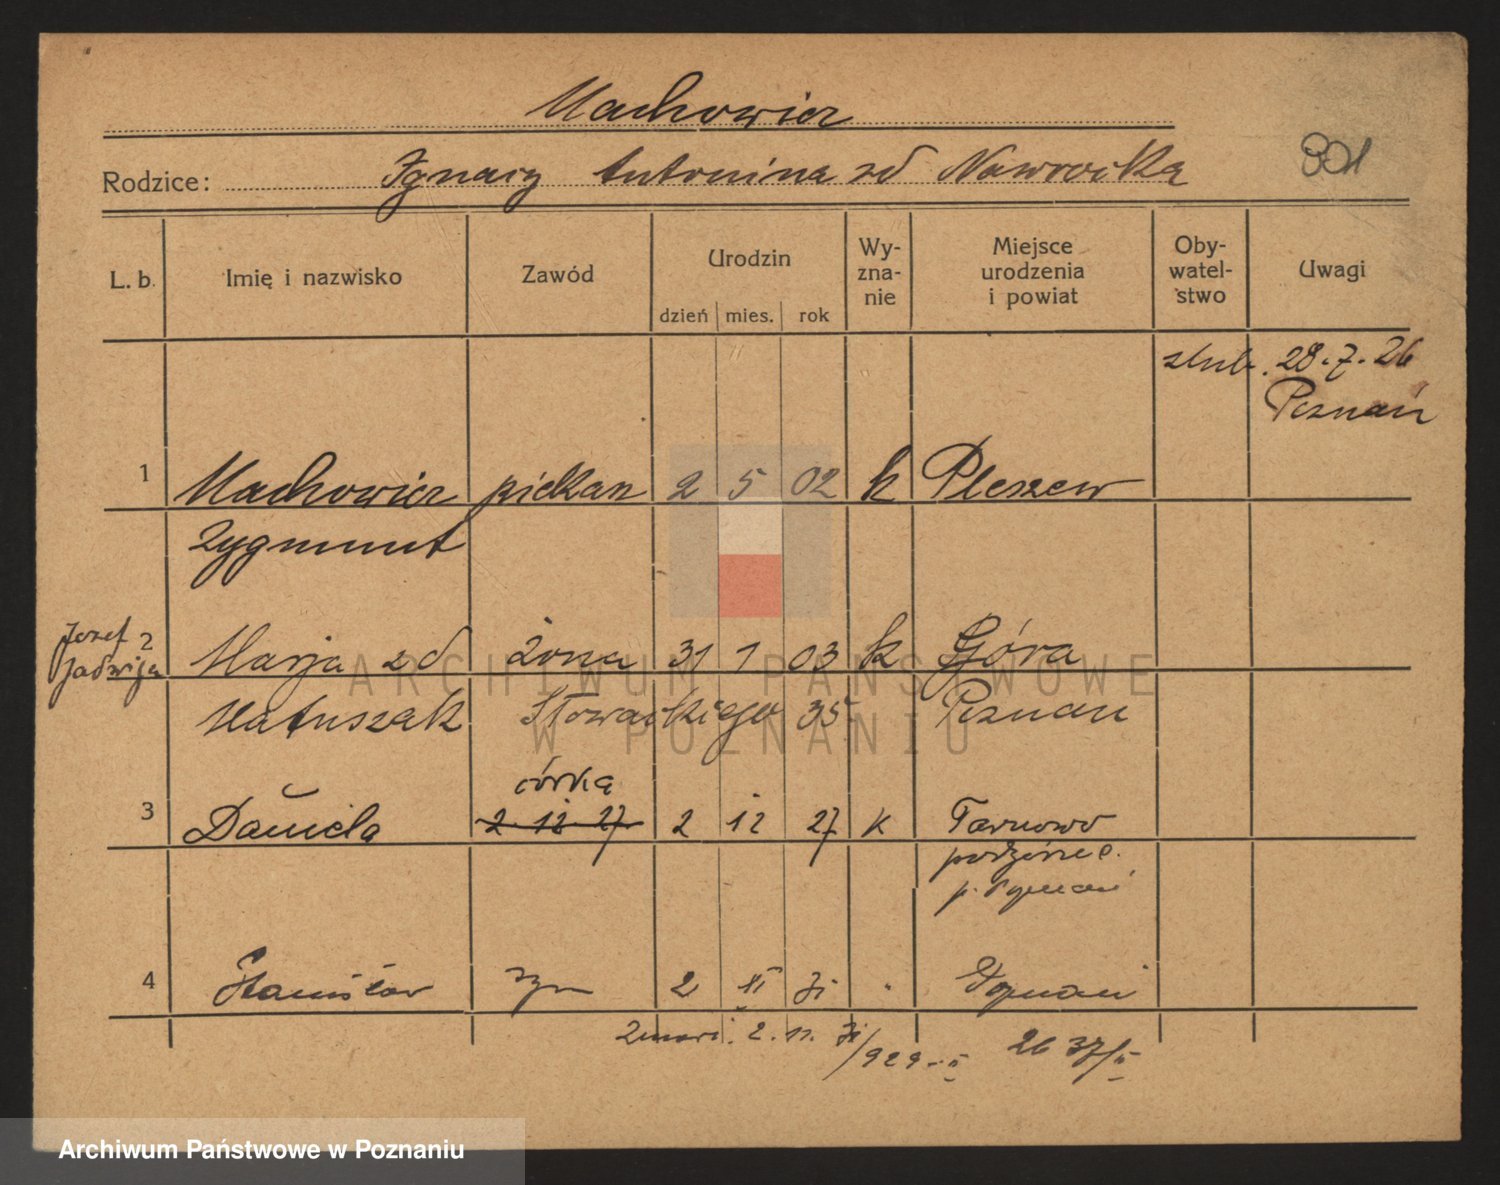 Machowicz
801
Rodzice: Ignacy Antonina zd Nawrocka
L. b. Imię i nazwisko Zawód Urodzin dzień mies. rok Wy-zna-nie Miejsce urodzenia i powiat Oby-watel-stwo Uwagi
ślub. 28.7.26
Poznań
1 Machowicz piekarz 2 5 02 k Pleszew
Zygmunt
Józef
Jadwiga
2 Marja zd żona 31 1 03 k Góra
Matuszak Słowackiego 35 Poznań
córka
3 Daniela 2 12 27 2 12 27 k Tarnowo
podgórne
p. Poznań
4 Stanisław syn 2 XI 31 " Poznań
Zmarł. 2. 11. 31
/929-II 26 37/II
ARCHIWUM PAŃSTWOWE
W POZNANIU
Archiwum Państwowe w Poznaniu